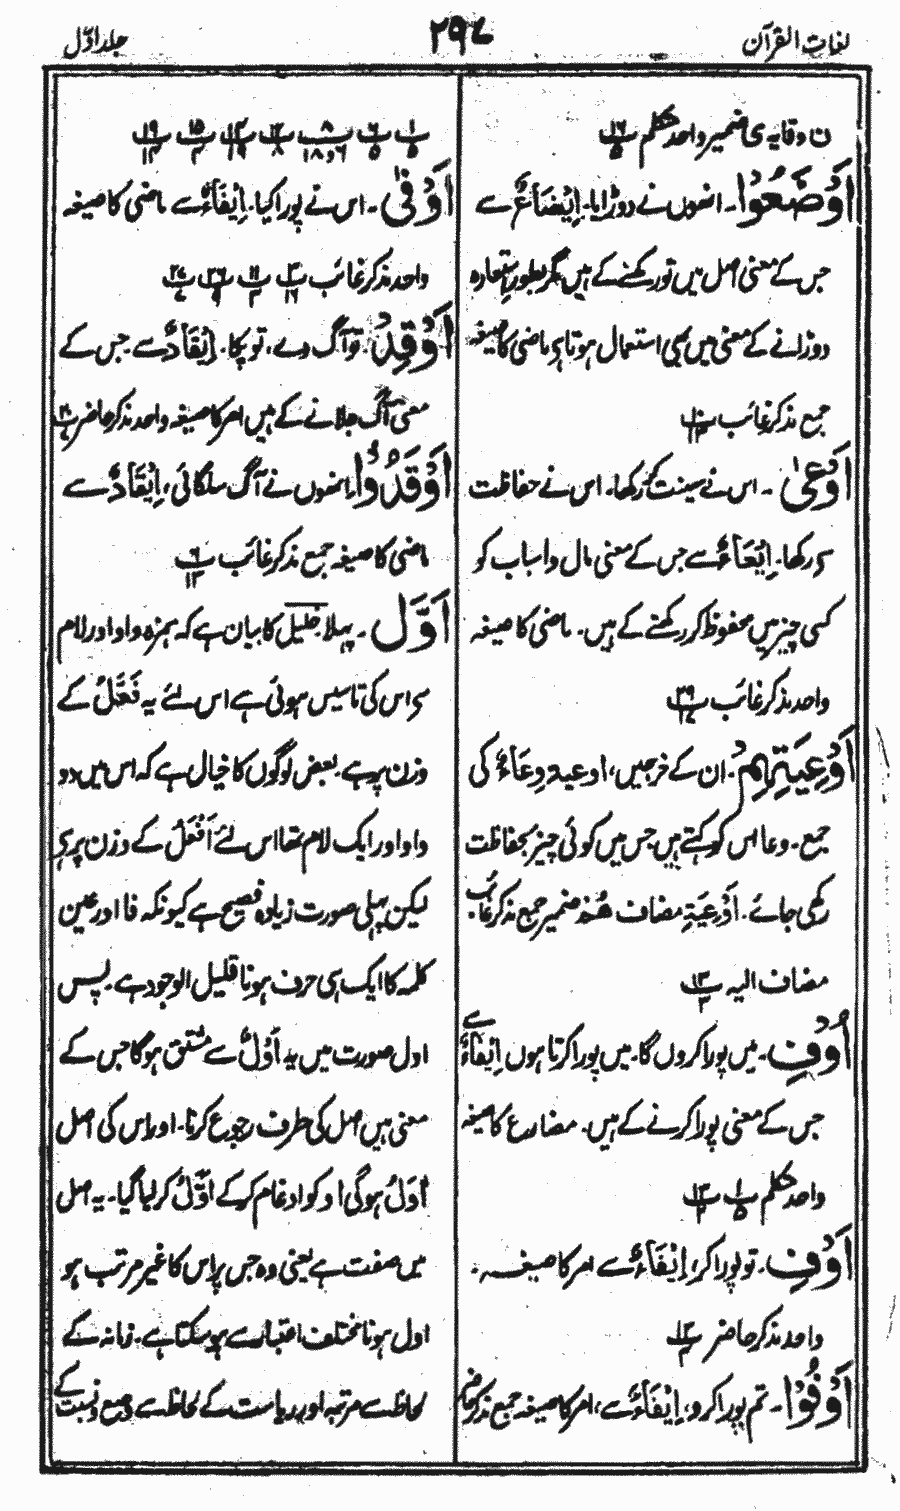 لغات القرآن
۲۹۷
جلد اوّل
ن وقایہ ی ضمیر واحد متکلم پ
اَوْضَعُوْا۔ انھوں نے دوڑایا۔ اِیْضَاعٌ سے
جس کے معنی اصل میں تو رکھنے کے ہیں مگر بطور استعارہ
دوڑانے کے معنی میں بھی استعمال ہوتا ہے ماضی کا صیغہ
جمع مذکر غائب پ
اَوْعٰی۔ اس نے سینت کر رکھا۔ اس نے حفاظت
سے رکھا۔ اِیْعَاءٌ سے جس کے معنی مال واسباب کو
کسی چیز میں محفوظ کر رکھنے کے ہیں۔ ماضی کا صیغہ
واحد مذکر غائب پ ۲۹
اَوْعِیَتِهِمْ۔ ان کے خرجیں، اوعیہ وِعَاءٌ کی
جمع۔ وعا اس کو کہتے ہیں جس میں کوئی چیز بحفاظت
رکھی جائے۔ اَوْعِیَۃِ مضاف ھُمْ ضمیر جمع مذکر غائب
مضاف الیہ پ ۱۳
اُوْفِ۔ میں پورا کروں گا۔ میں پورا کرتا ہوں اِیْفَاءٌ سے
جس کے معنی پورا کرنے کے ہیں۔ مضارع کا صیغہ
واحد متکلم پ ۱ پ ۱۳
اَوْفِ۔ تو پورا کر، اِیْفَاءٌ سے امر کا صیغہ۔
واحد مذکر حاضر پ
اَوْفُوْا۔ تم پورا کرو، اِیْفَاءٌ سے، امر کا صیغہ جمع مذکر حاضر
پ ۱ پ ۶ پ ۸ پ پ ۱۳ پ ۱۵ پ ۱۹
اَوْفٰی۔ اس نے پورا کیا۔ اِیْفَاءٌ سے ماضی کا صیغہ
واحد مذکر غائب پ پ ۱۱ پ ۲۶ پ ۲۷
اَوْقِدْ۔ تو آگ دے، تو پکا۔ اِیْقَادٌ سے جس کے
معنی آگ جلانے کے ہیں امر کا صیغہ واحد مذکر حاضر پ ۲۰
اَوْقَدُوْا۔ انھوں نے آگ سلگائی، اِیْقَادٌ سے
ماضی کا صیغہ جمع مذکر غائب پ ۶
اَوَّل۔ پہلا۔ خلیل کا بیان ہے کہ ہمزہ واو اور لام
سے اس کی تاسیس ہوئی ہے اس لئے یہ فَعَّلُ کے
وزن پر ہے۔ بعض لوگوں کا خیال ہے کہ اس میں دو
واو اور ایک لام تھا اس لئے اَفْعَلُ کے وزن پر ہے
لیکن پہلی صورت زیادہ فصیح ہے کیونکہ فا اور عین
کلمہ کا ایک ہی حرف ہونا قلیل الوجود ہے۔ پس
اول صورت میں یہ اَوْلٌ سے مشتق ہوگا جس کے
معنی ہیں اصل کی طرف رجوع کرنا۔ اور اس کی اصل
اٰوَلُ ہوگی ا و کو ادغام کرکے اَوَّلُ کرلیا گیا۔ یہ اصل
میں صفت ہے یعنی وہ جس پر اس کا غیر مرتب ہو
اول ہونا مختلف اعتبار سے ہوسکتا ہے۔ زمانہ کے
لحاظ سے مرتبہ اور ریاست کے لحاظ سے وضع ونسبت کے